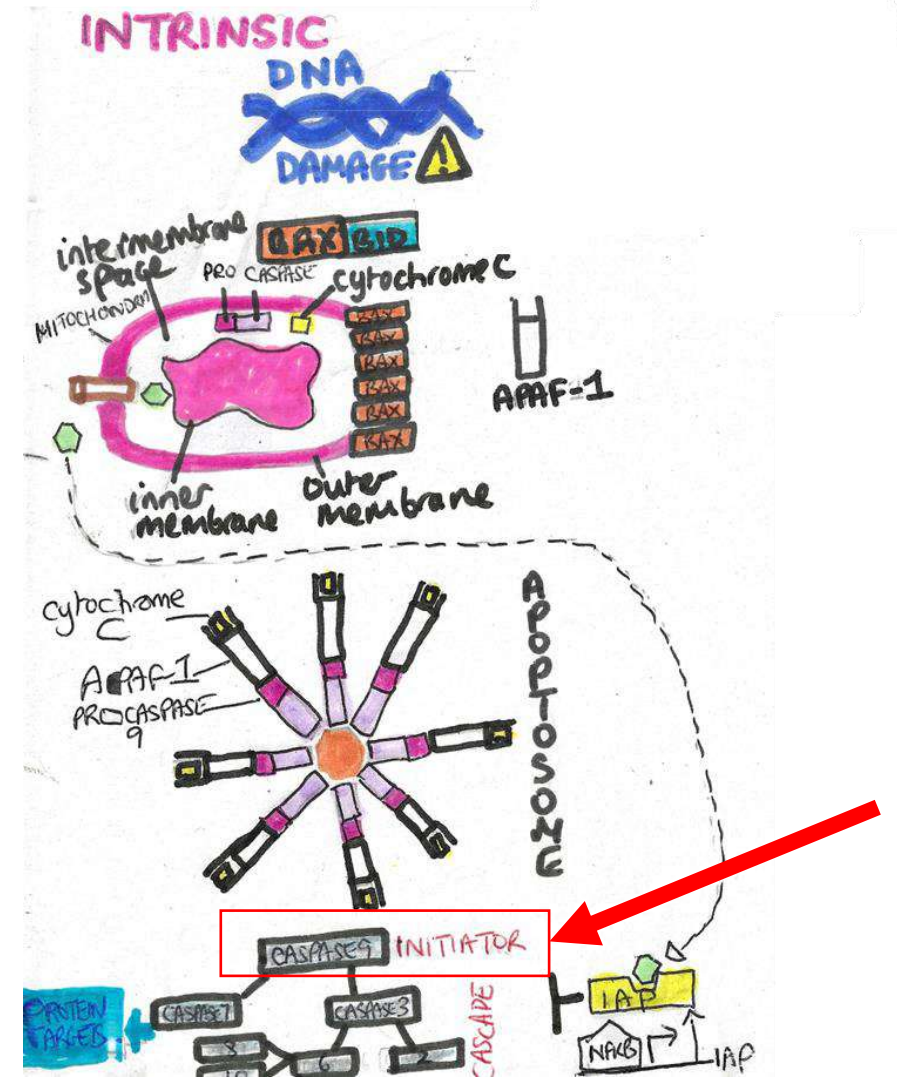 INTRINSIC
DNA
DAMAGE
!
BAX BID
intermembrane
space
PRO CASPASE
cytochrome C
MITOCHONDRI
BAX
BAX
BAX
BAX
BAX
BAX
APAF-1
inner
membrane
outer
membrane
cytochrome
C
APAF-1
PROCASPASE
9
APOPTOSOME
CASPASE9 INITIATOR
PROTEIN
TARGETS
CASPASE7
CASPASE3
CASCADE
IAP
8
6
2
10
NFKB
IAP